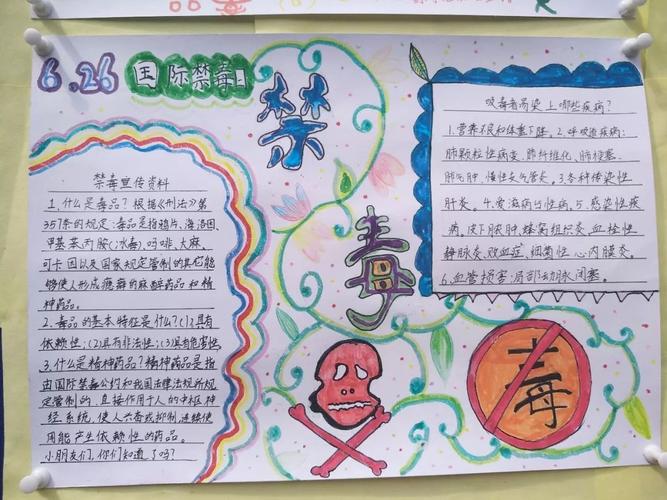 6.26
国际禁毒日
禁
毒
禁毒宣传资料
1.什么是毒品?根据《刑法》第
357条的规定:毒品是指鸦片、海洛因、
甲基苯丙胺(冰毒)、吗啡、大麻、
可卡因以及国家规定管制的其它能
够使人形成瘾癖的麻醉药品和精
神药品。
2.毒品的基本特征是什么?(1)具有
依赖性;(2)具有非法性;(3)具有危害性
3.什么是精神药品?精神药品是指
由国际禁毒公约和我国法律法规所规
定管制的,直接作用于人的中枢神
经系统,使人兴奋或抑制,连续使
用能产生依赖性的药品。
小朋友们,你们知道了吗?
吸毒者易染上哪些疾病?
1.营养不良和体重下降。2.呼吸道疾病:
肺颗粒性病变、肺纤维化、肺梗塞、
肺气肿、慢性支气管炎。3.各种传染性
肝炎。4.爱滋病与性病。5.感染性疾
病,皮下脓肿、蜂窝组织炎、血栓性
静脉炎、败血症、细菌性心内膜炎。
6.血管损害:局部动脉闭塞。
毒